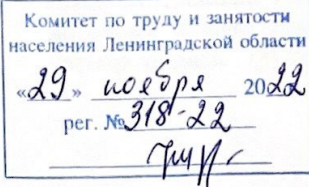 Комитет по труду и занятости
населения Ленинградской области
«29» ноября 2022
рег. №318-22